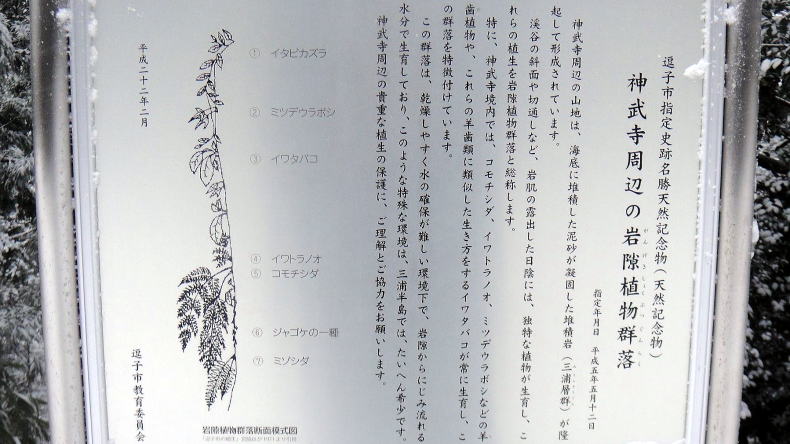 逗子市指定史跡名勝天然記念物（天然記念物）
神武寺周辺の岩隙植物群落
がんげきしょくぶつぐんらく
指定年月日　平成五年五月十二日
神武寺周辺の山地は、海底に堆積した泥砂が凝固した堆積岩（三浦層群）が隆
起して形成されています。
渓谷の斜面や切通しなど、岩肌の露出した日陰には、独特な植物が生育し、こ
れらの植生を岩隙植物群落と総称します。
特に、神武寺境内では、コモチシダ、イワトラノオ、ミツデウラボシなどの羊
歯植物や、これらの羊歯類に類似した生き方をするイワタバコが常に生育し、こ
の群落を特徴付けています。
この群落は、乾燥しやすく水の確保が難しい環境下で、岩隙からにじみ流れる
水分で生育しており、このような特殊な環境は、三浦半島では、たいへん希少です。
神武寺周辺の貴重な植生の保護に、ご理解とご協力をお願いします。
① イタビカズラ
② ミツデウラボシ
③ イワタバコ
④ イワトラノオ
⑤ コモチシダ
⑥ ジャゴケの一種
⑦ ミゾシダ
岩隙植物群落断面模式図
平成二十二年二月
逗子市教育委員会